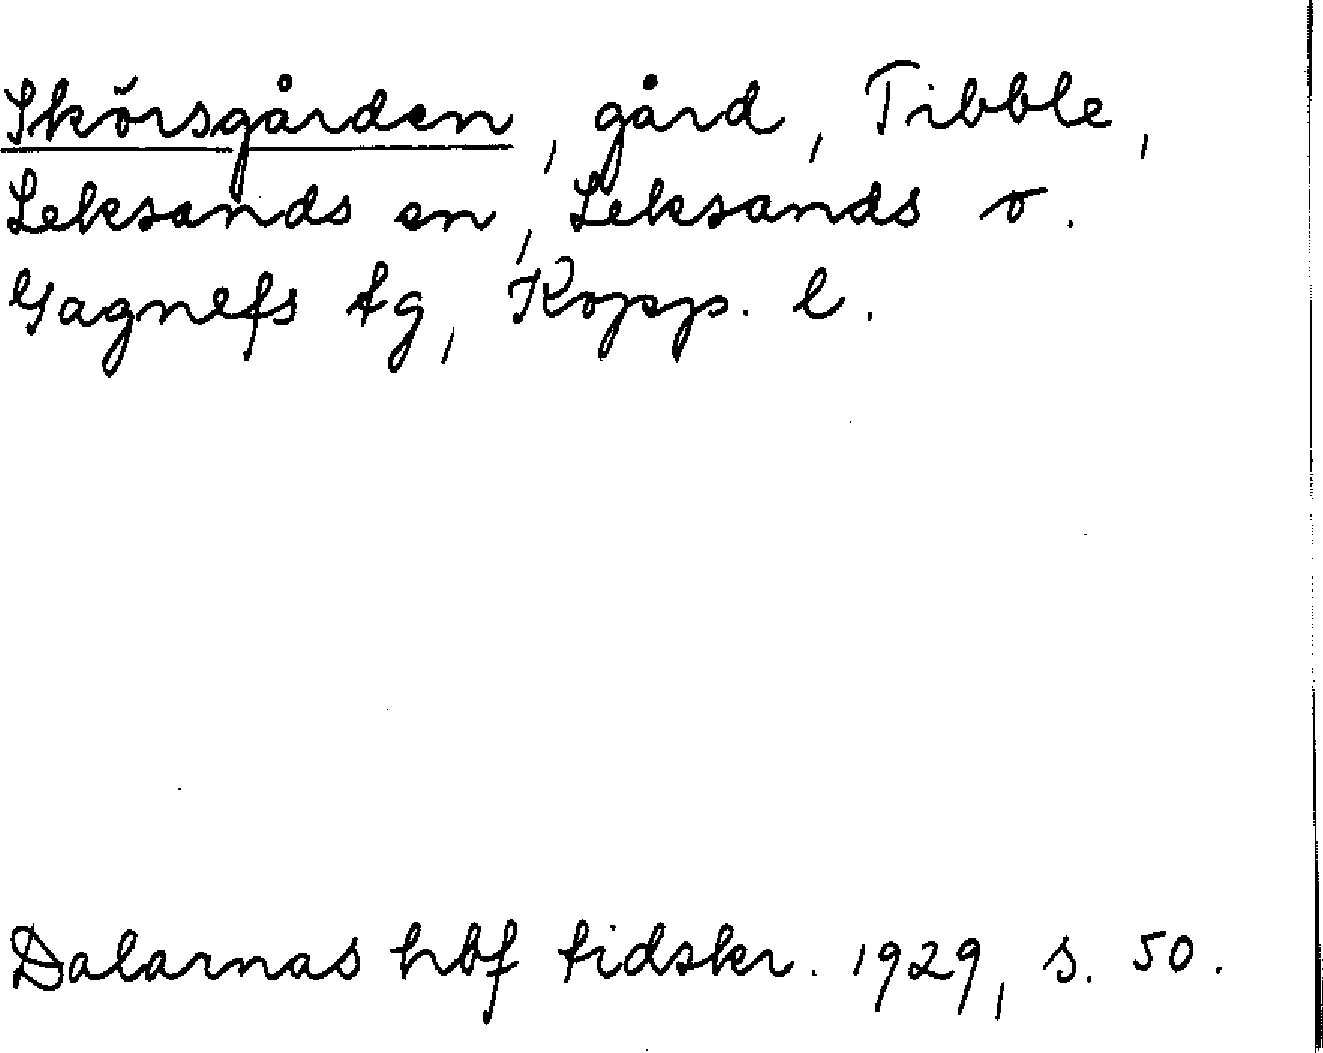 Skörsgården, gård, Tibble,
Leksands sn, Leksands o.
Gagnefs tg, Kopp. l.
Dalarnas hbf tidskr. 1929, s. 50.